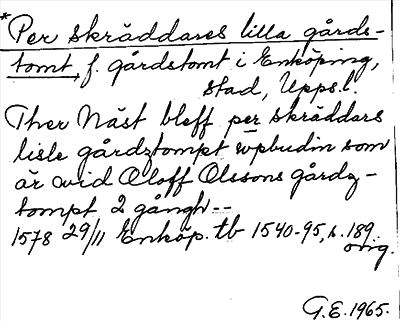 *Per skräddares lilla gårds-
tomt, f. gårdstomt i Enköping,
stad, Upps.l.
Ther Näst bleff per skräddars
lisle gårdztompt wpbudin som
är wid Oloff Olssons gårdz-
tompt 2 gångh--
1578 29/11 Enköp. tb 1540-95, s. 189
orig.
G.E. 1965.